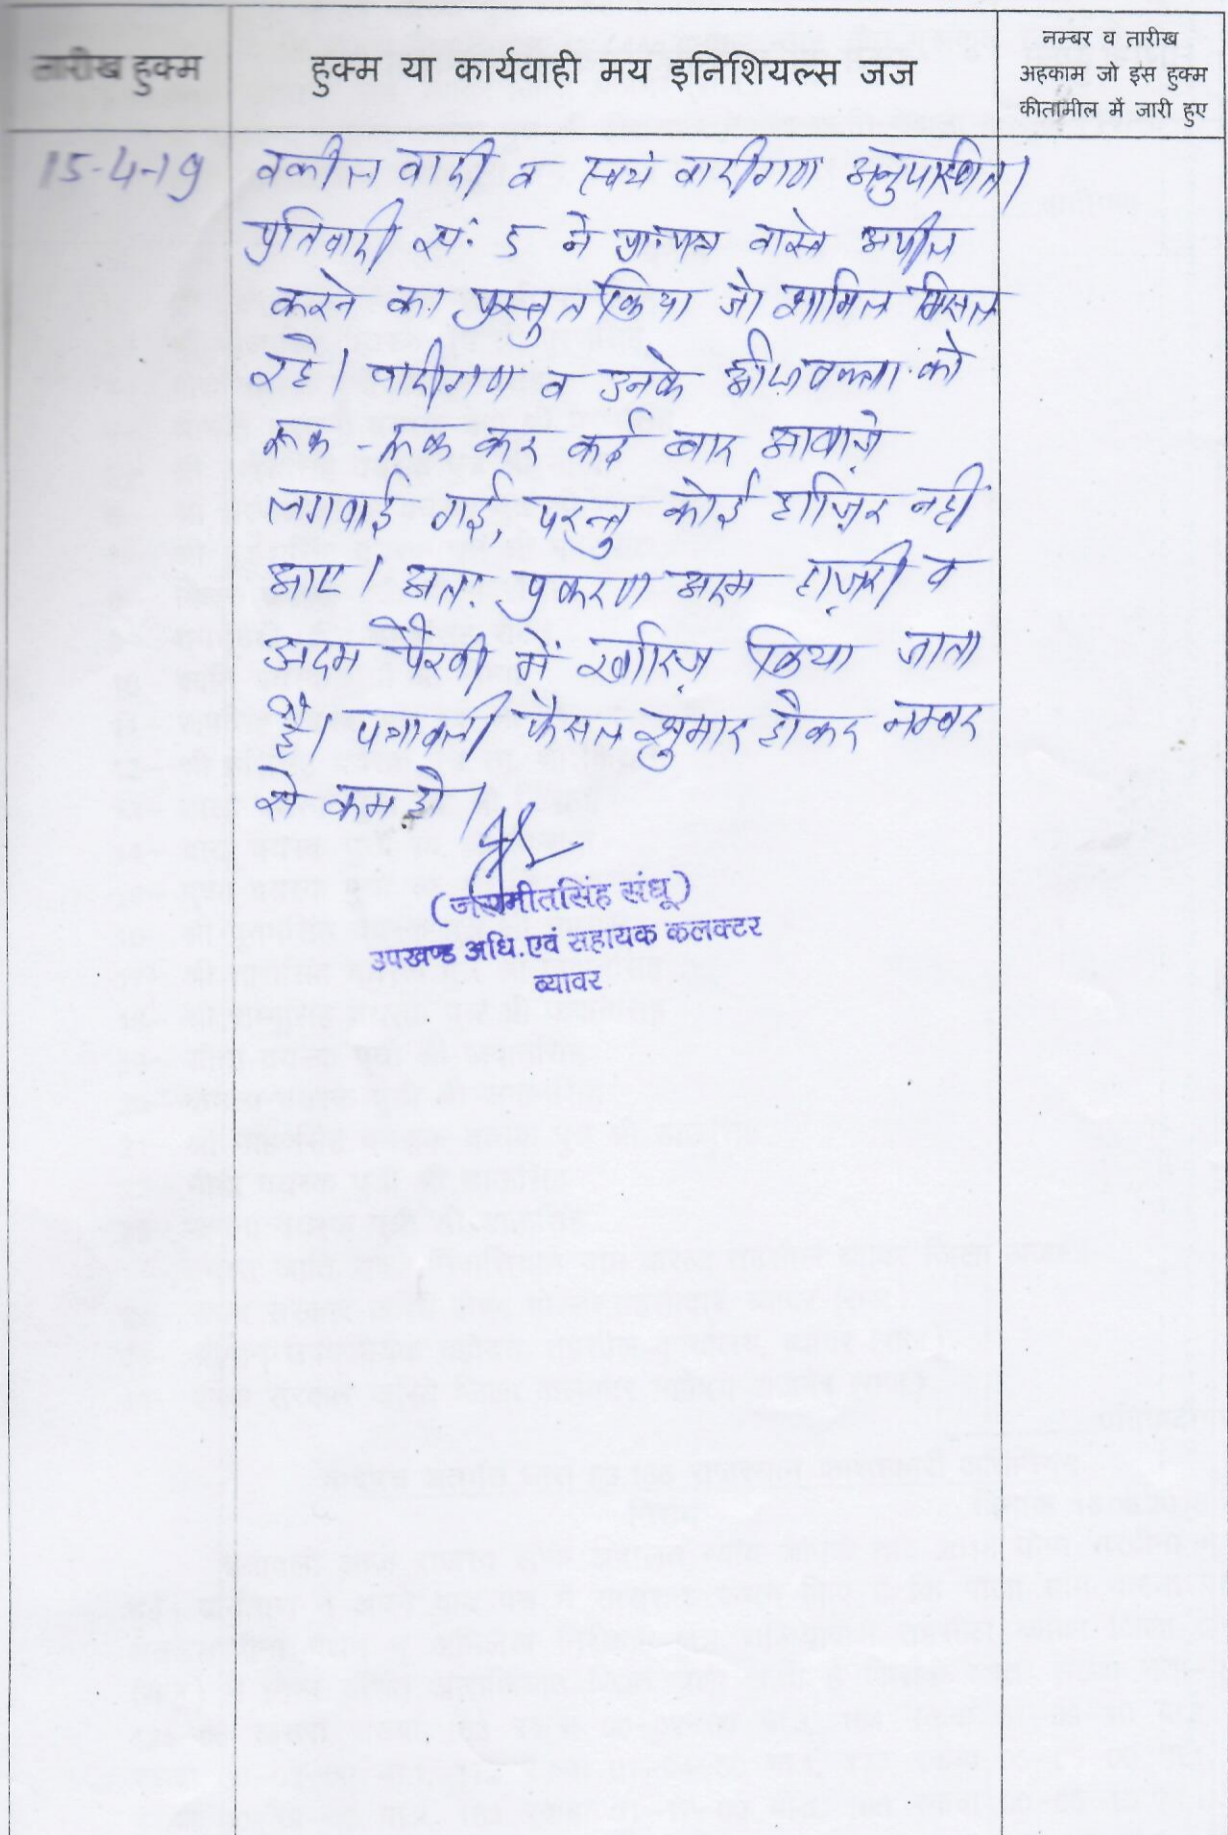 तारीख हुक्म
हुक्म या कार्यवाही मय इनिशियल्स जज
नम्बर व तारीख
अहकाम जो इस हुक्म
कीतामील में जारी हुए
15-4-19
वकील वादी व स्वयं वादीगण अनुपस्थित।
प्रतिवादी सं. 5 ने प्रा.पत्र वास्ते अपील
करने का प्रस्तुत किया जो शामिल मिसल
रहे। वादीगण व उनके अधिवक्ता को
रूक-रूक कर कई बार आवाज़े
लगवाई गई, परन्तु कोई हाज़िर नहीं
आए। अतः प्रकरण अदम हाज़री व
अदम पैरवी में खारिज़ किया जाता
है। पत्रावली फैसल शुमार होकर नम्बर
से कम हो।
(जसमीतसिंह संधू)
उपखण्ड अधि.एवं सहायक कलक्टर
ब्यावर